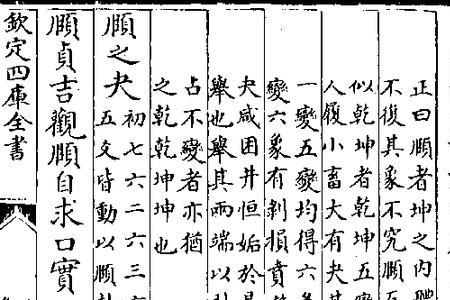 正曰頤者坤之内
不復其象不究頤
似乾坤者乾坤五變
人履小畜大有夬其
一變五變均得六
變六象有剝損賁
夬咸困井恒姤於是
舉也舉其兩端以
占不變者亦猶
之乾乾坤坤也
頤之夬
初七六二六三
五爻皆動以頤
頤貞吉觀頤自求口實
欽定四庫全書